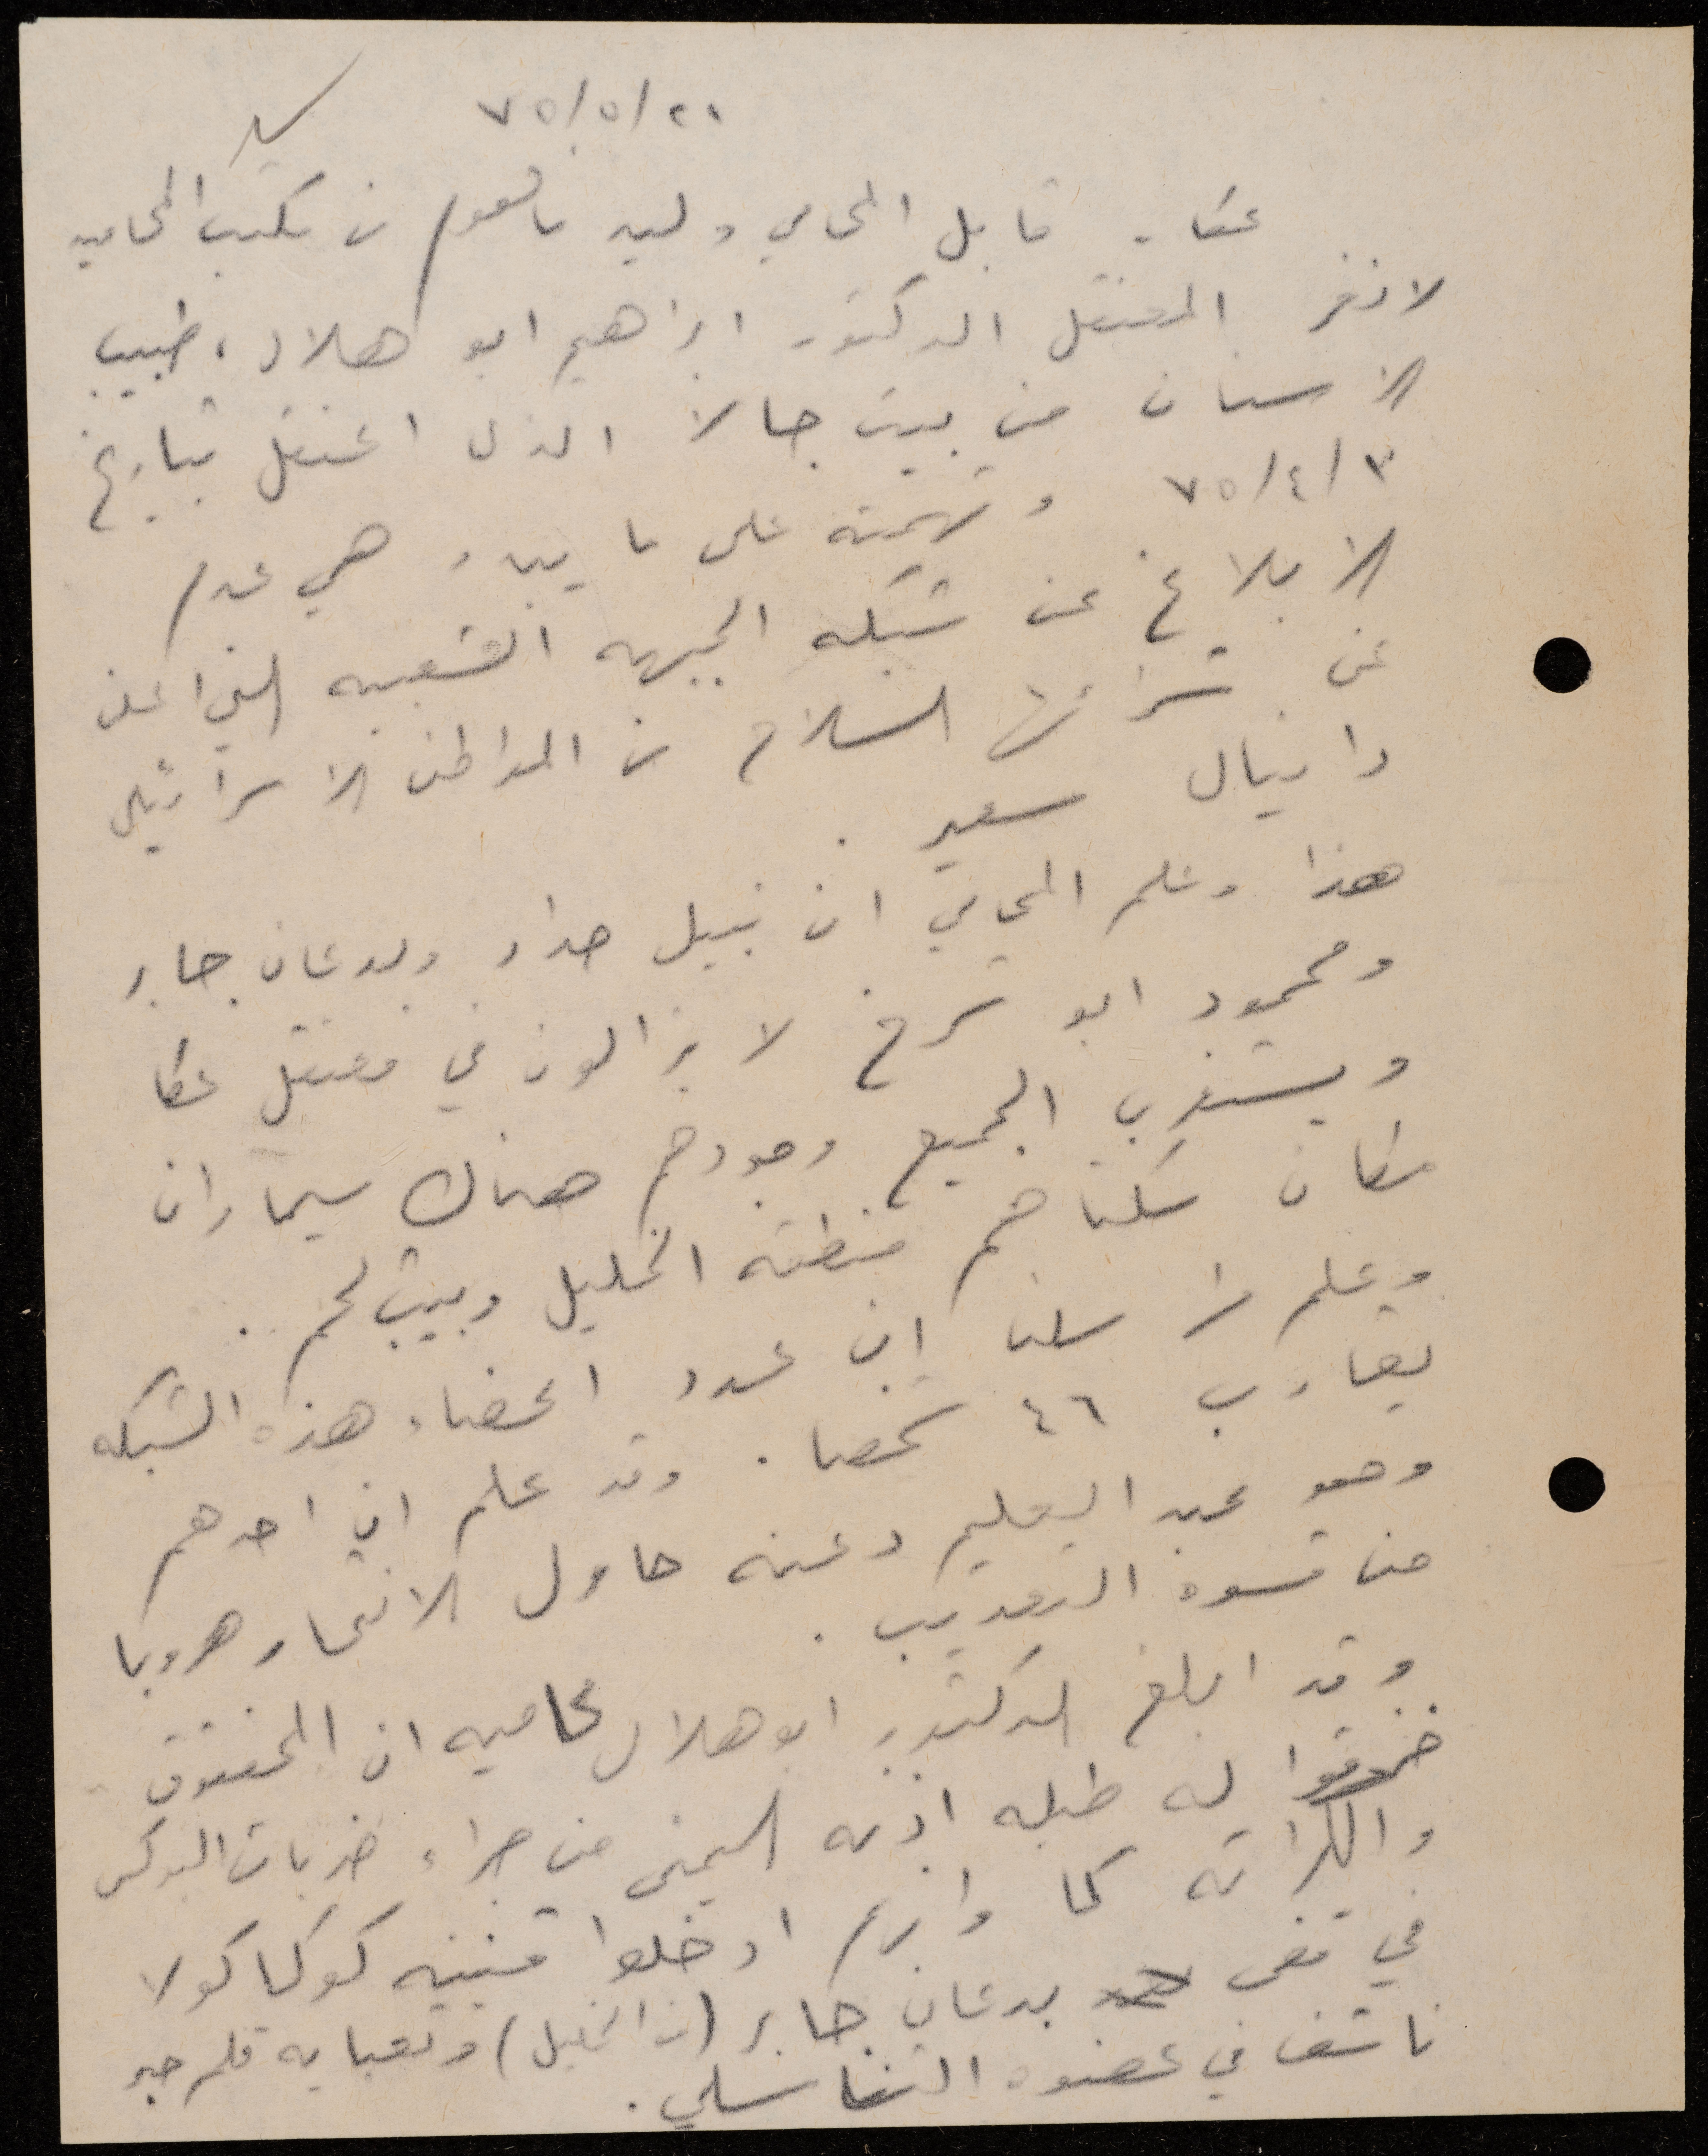 ٧٥/٥/٢٠
عكا - قابل المحامي وليد فاهوم من مكتب المحاميه
لانغر المعتقل الدكتور ابراهيم ابو هلال، طبيب
الاسنان من بيت جالا الذي اعتقل بتاريخ
٧٥/٤/٣ وتهمته على ما يبدو هي عدم
الابلاغ عن شبكه الجبهه الشعبيه التي اعلن
عن شرائها السلاح من المواطن الاسرائيلي
دانيال سعيد.
هذا وعلم المحامي ان نبيل حداد وبدعان جابر
ومحمود ابو شرخ لا يزالون في معتقل عكا
ويستغرب الجميع وجودهم هناك سيما وان
مكان سكناهم منطقه الخليل وبيت لحم.
وعلم مراسلنا ان عدد اعضاء هذه الشبكه
يقارب ٤٦ شخصا. وقد علم ان احدهم
وهو عبد العليم دعنه حاول الانتحار هروبا
من قسوه التعذيب.
وقد ابلغ الدكتور ابو هلال محاميه ان المحققون
خزقوا له طبله اذنه اليمنى من جراء ضربات البوكس
والكراته كما وانهم ادخلوا قنينه كوكا كولا
في قفى بدعان جابر (من الخليل) وتعبايه قلم حبر
ناشف في عضوه التناسلي.